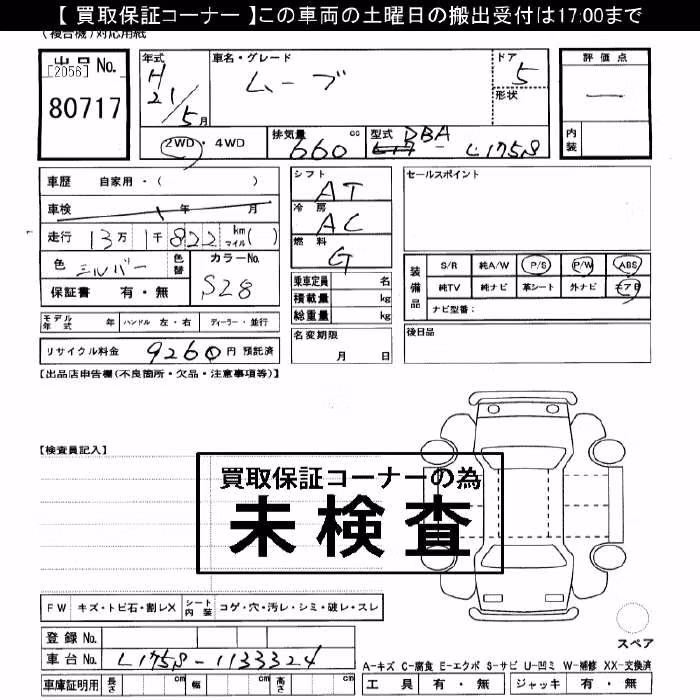 【 買取保証コーナー 】この車両の土曜日の搬出受付は17:00まで
(複合機)対応用紙
出品No.
[2056]
80717
年式 H 21/5月
車名・グレード ムーブ
ドア 5
形状
評価点 —
内装
2WD・4WD
排気量 660 cc
型式 DBA - L175S
車歴 自家用・( )
車検 年 月
走行 13万1千822 km マイル( )
色 シルバー 色替
カラーNo. S28
保証書 有・無
シフト AT
冷房 AC
燃料 G
乗車定員 名
積載量 kg
総重量 kg
セールスポイント
装備品
S/R 純A/W P/S P/W ABS
純TV 純ナビ 革シート 外ナビ エアB
ナビ型番:
モデル年式 年 ハンドル 左・右 ディーラー・並行
リサイクル料金 9260円 預託済
名変期限 月 日
後日品
【出品店申告欄(不良箇所・欠品・注意事項等)】
【検査員記入】
買取保証コーナーの為
未検査
FW キズ・トビ石・割レX シート内装 コゲ・穴・汚レ・シミ・破レ・スレ
登録No.
車台No. L175S-1133324
スペア
A-キズ C-腐食 E-エクボ S-サビ U-凹ミ W-補修 XX-交換済
車庫証明用 長さ cm 幅 cm 高さ cm
工具 有・無 ジャッキ 有・無